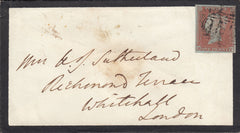 Mrs A. J. Sutherland
Richmond Terrace
Whitehall
London